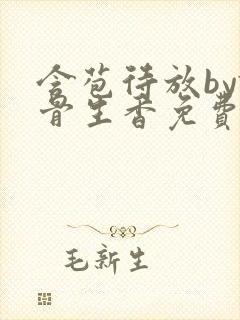 含苞待放by
骨生香免费
毛新生